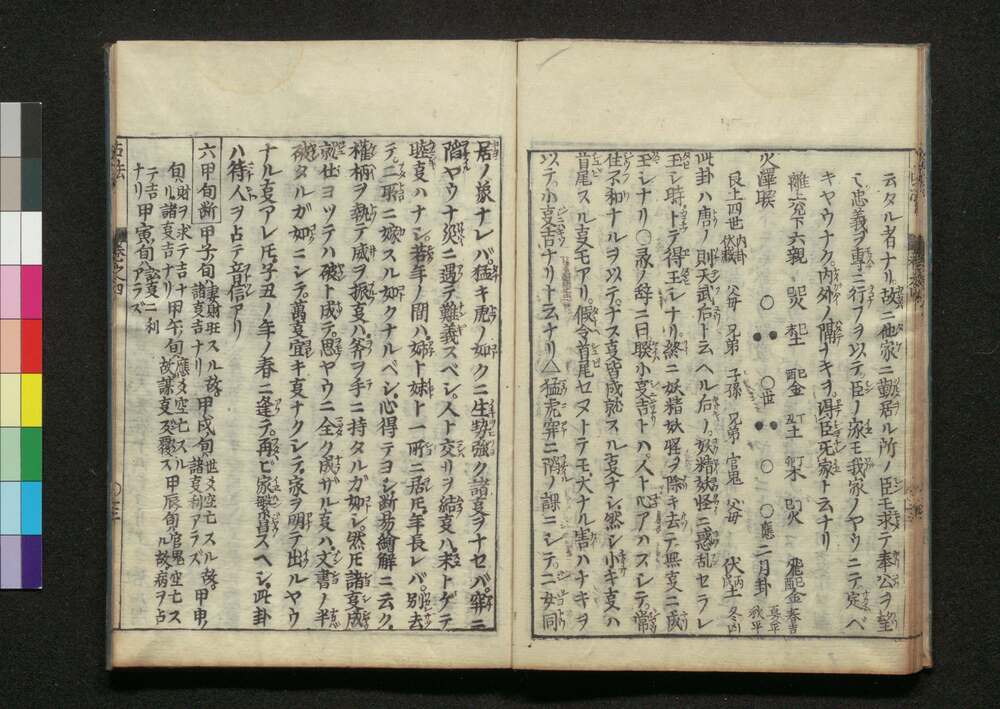 云タル者ナリ故ニ他家ニ勤居ル所ノ臣モ求テ奉公ヲ望
ミ忠義ヲ専ニ行フヲ以テ臣ノ家モ我家ノヤウニテ定ベ
キヤウナク内外ノ隔ナキヲ得臣无家ト云ナリ
火澤睽
離上兌下六親
艮上四世 内卦伏蔵
父母 兄弟 子孫 兄弟 官鬼 父母
二月卦
春吉
冬凶
此卦ハ唐ノ則天武后ト云ヘル后ノ妖精妖怪ニ惑乱セラレ
玉シ時トテ得玉レナリ終ニ妖精妖怪ヲ除キ去テ無叓ニ成
玉シナリ〇彖ノ辞ニ曰睽小叓吉トハ人ト心アハズシテ常
住不和ナルヲ以テナス叓皆成就スル叓ナシ然シ小キ叓ハ
首尾スル叓モアリ仮令首尾セヌトテモ大ナル害ハナキヲ
以テ小叓吉ナリト云ナリ△猛虎穽ニ陷ノ課ニシテ二女同
居ノ象ナレバ猛キ虎ノ如クニ生勢強ク諸叓ヲナセバ穽ニ
陷ヤウナ災ニ遇テ難義スベシ人ト交リヲ結叓ハ末トゲテ
睦叓ハナシ若年ノ間ハ姉ト妹ト一所ニ居𪜈年長レバ別去
テ二所ニ嫁スル如クナルベシ心得テヨシ断易繪解ニ云ク
權柄ヲ執テ威ヲ振叓ハ斧ヲ手ニ持タルガ如シ然𪜈諸叓成
就仕ヨツテハ破ト成テ思ヤウニ全ク成ザル叓ハ文書ノ半
破タルガ如ニシテ萬叓宜キ叓ナクシテ家ヲ明テ出ルヤウ
ナル叓アレ𪜈子丑ノ年ノ春ニ逢テ再ビ家繁昌スヘシ此卦
ハ待人ヲ占テ音信アリ
六甲旬断 甲子旬 妻財旺スル故諸叓吉ナリ 甲戌旬 世爻空亡スル故諸叓利アラズ 甲申ノ
旬ハ財ヲ求テ吉ナリ諸叓吉ナリ 甲午旬 應爻空亡スル故謀叓反覆ス 甲辰旬 官鬼空亡スル故病ヲ占
テ吉ナリ 甲寅旬ハ諸叓ニ利アラズ
占法 巻之四